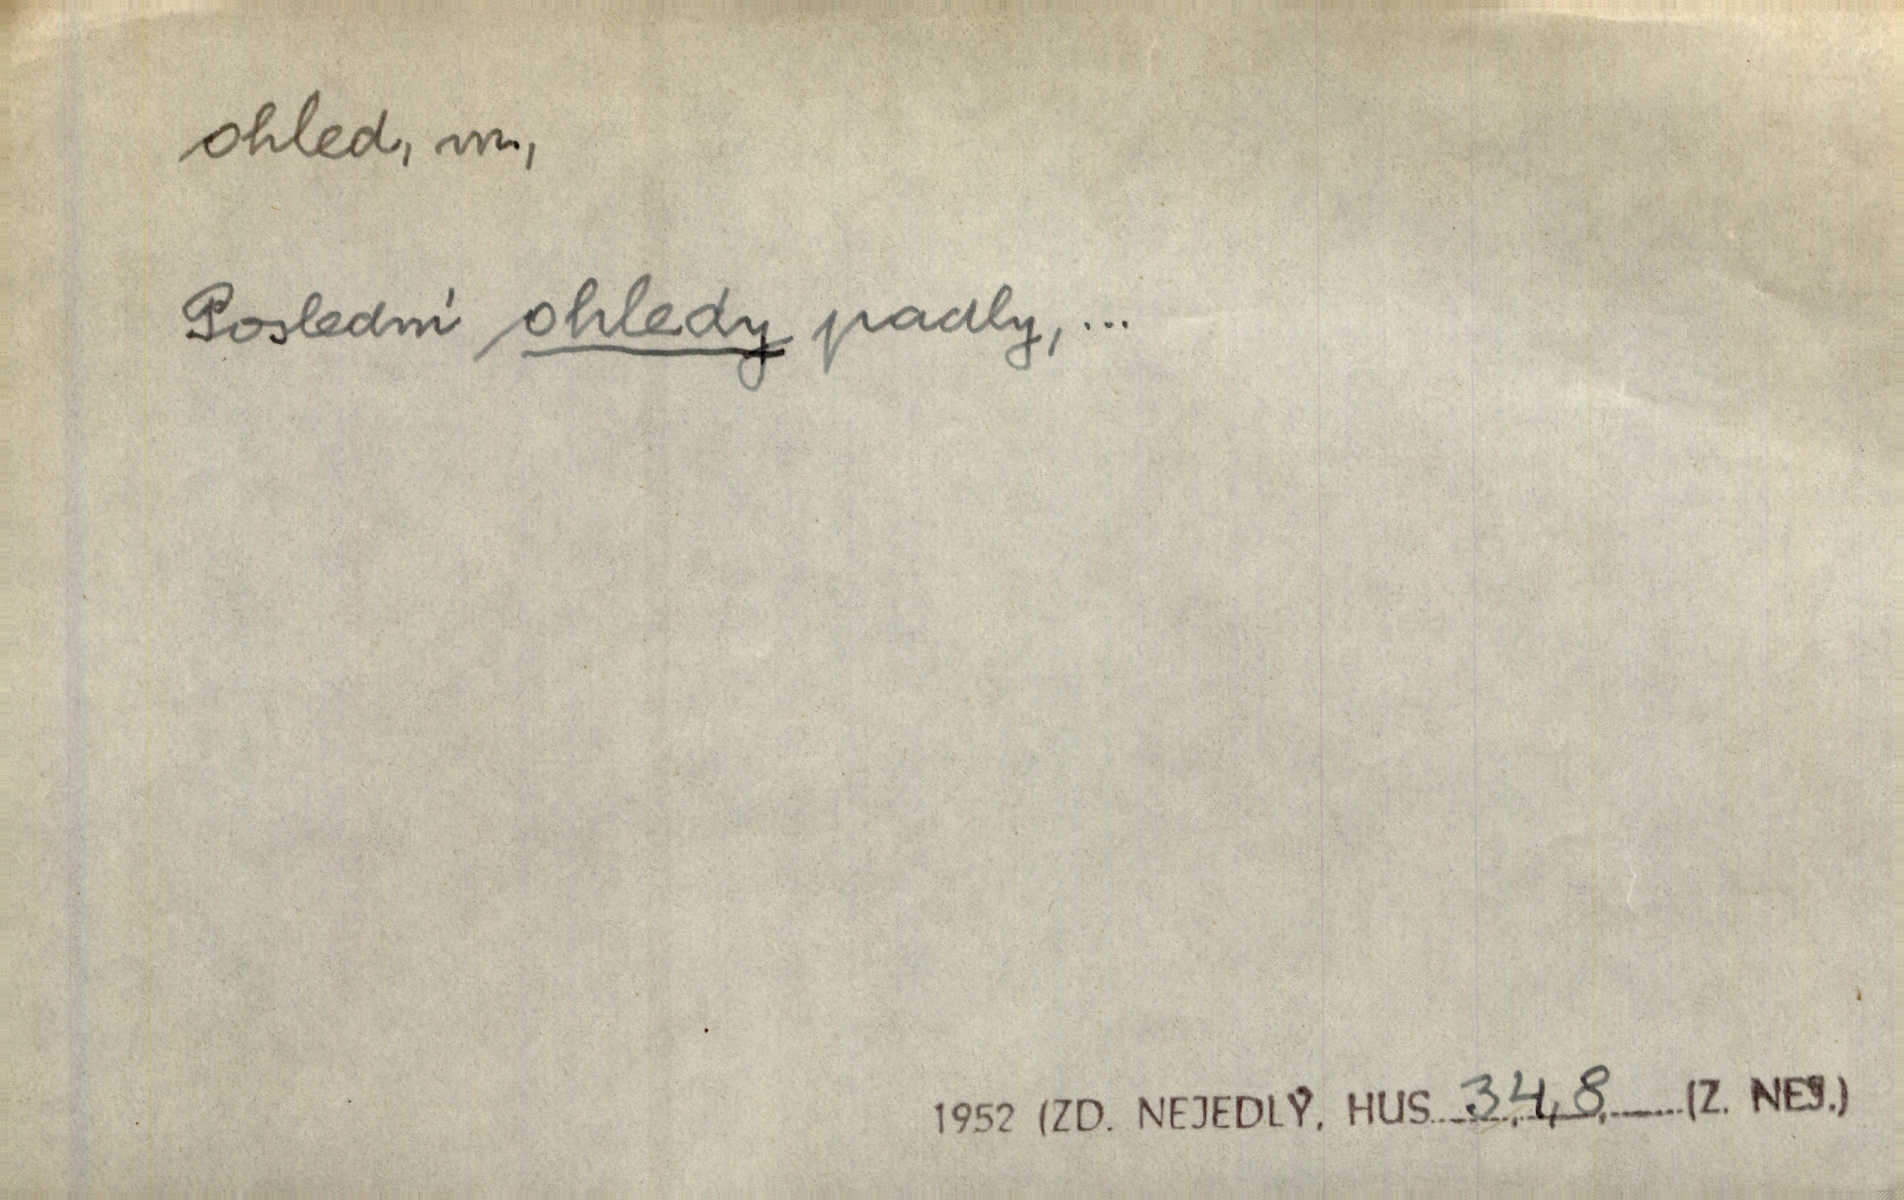 ohled, m.,
Poslední ohledy padly, ...
1952 (ZD. NEJEDLÝ, HUS 34, 8 (Z. NEJ.)